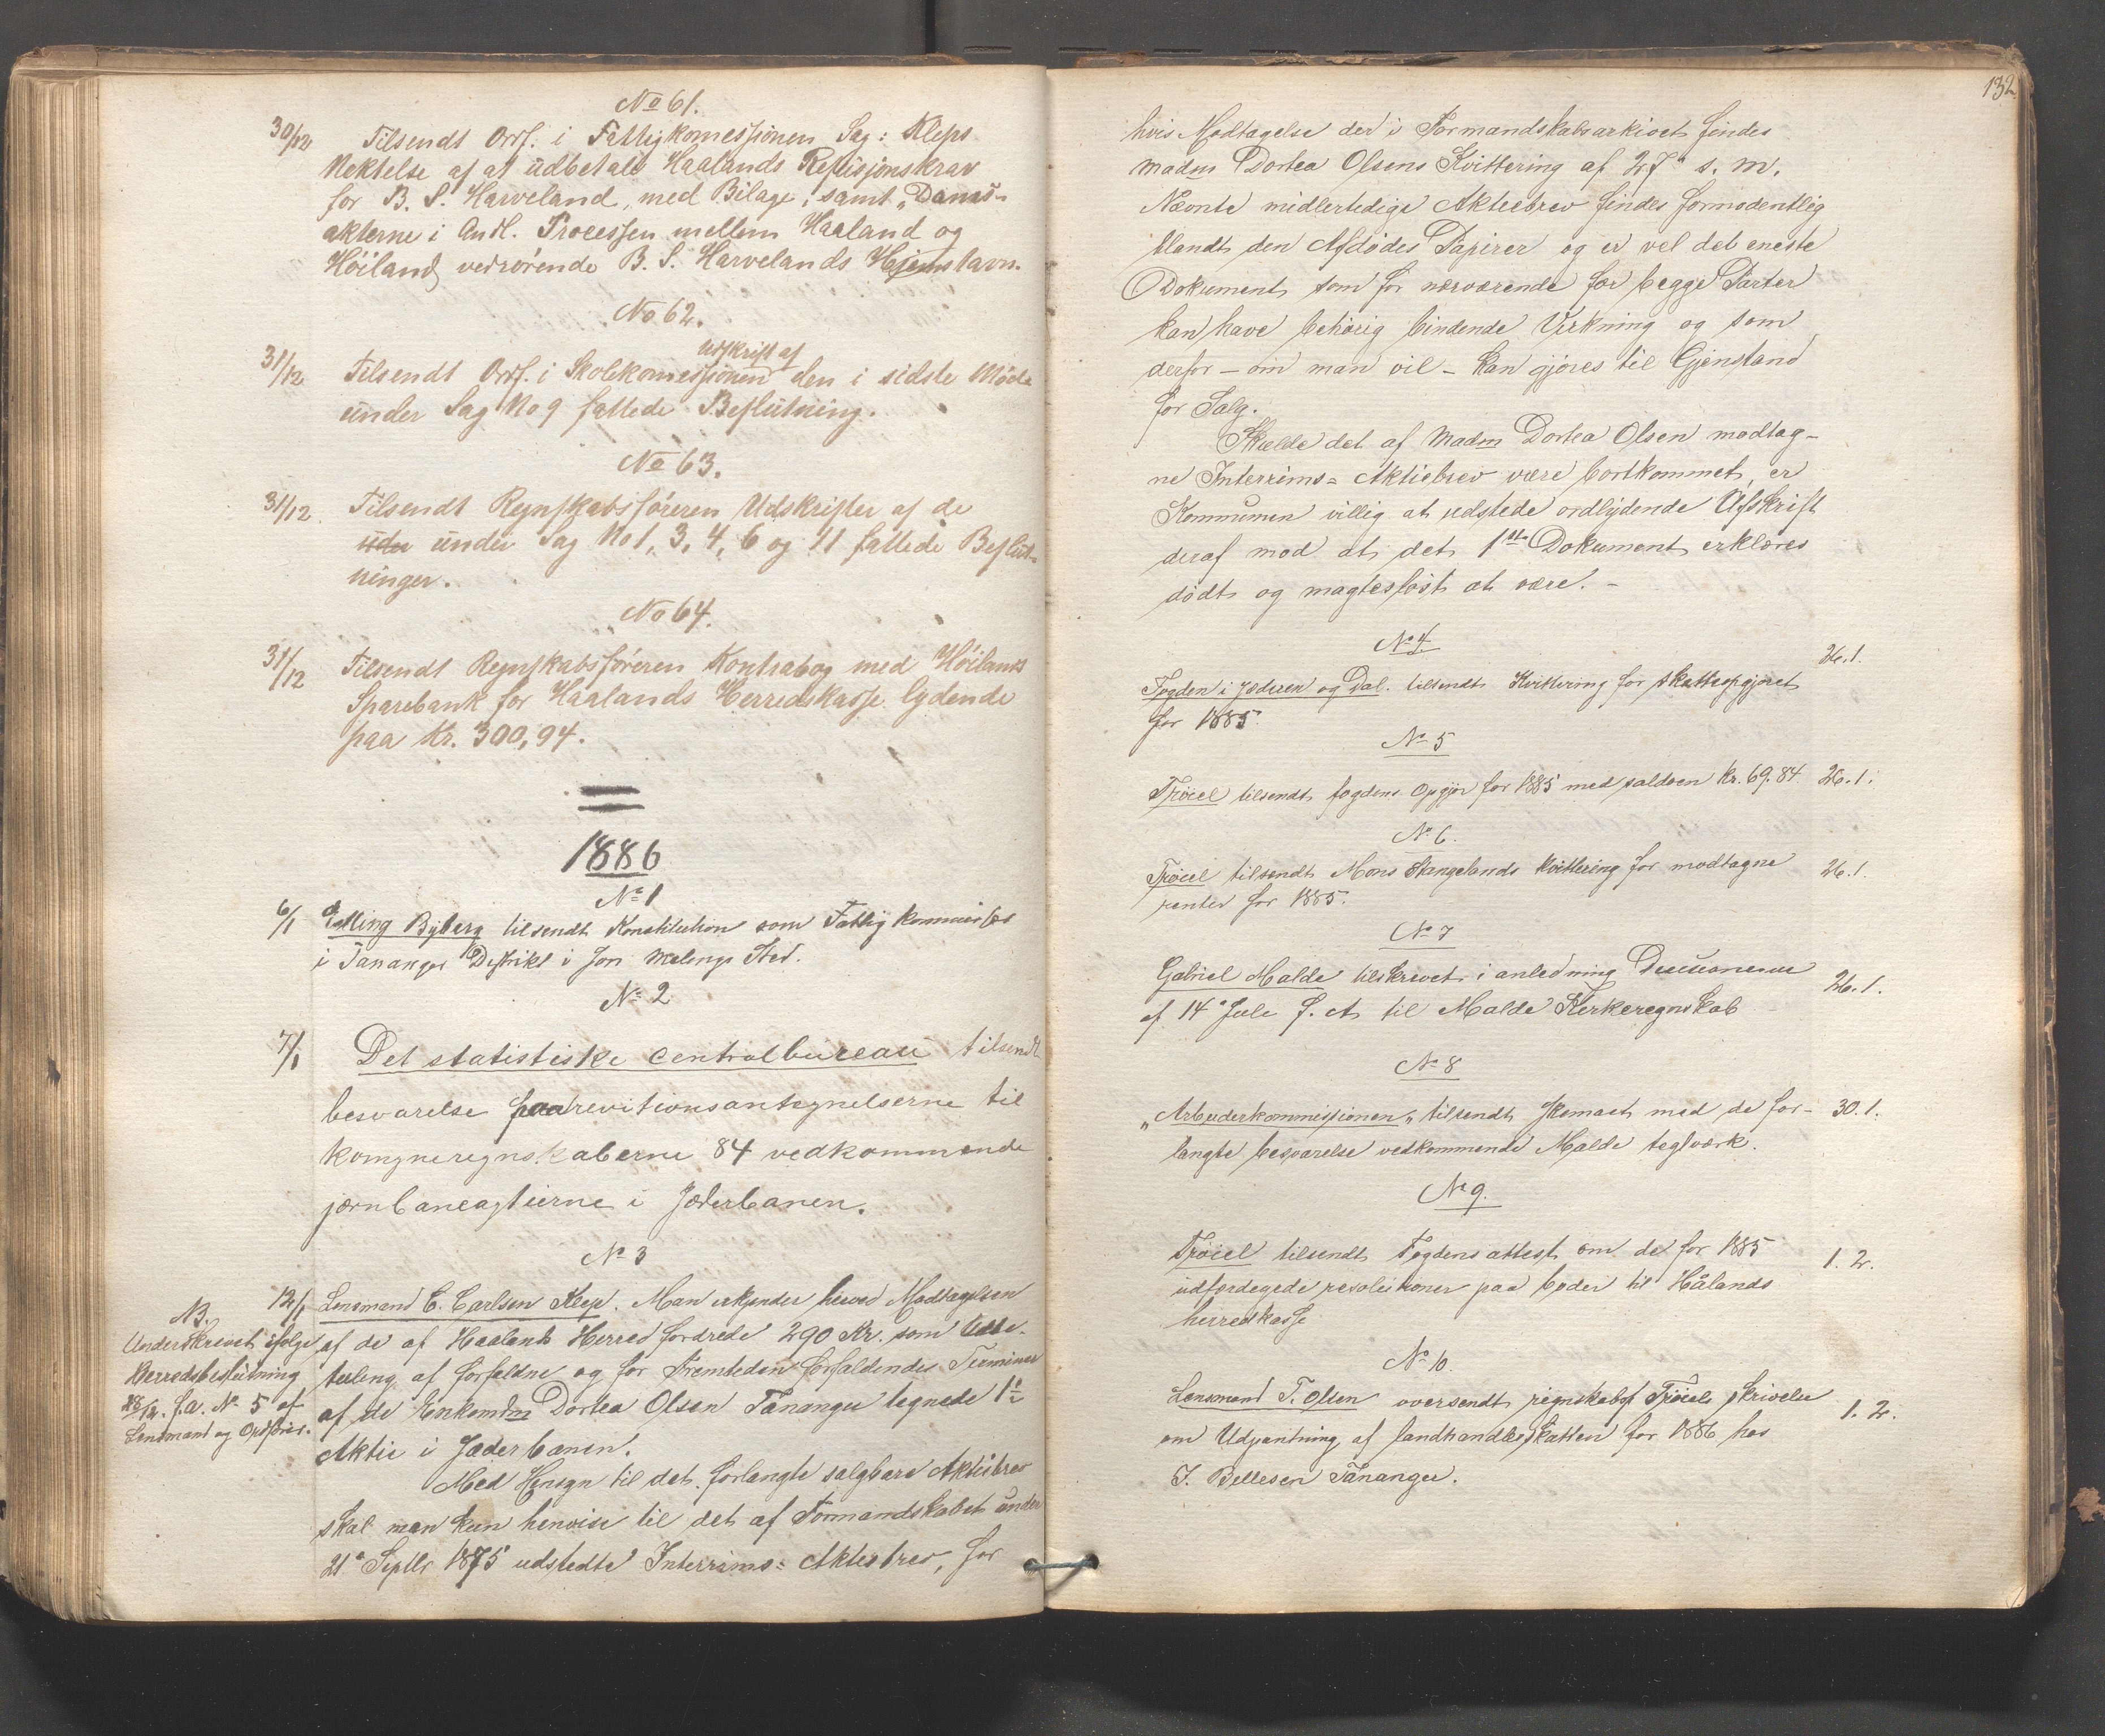 No 61.
30/12 Tilsendt Orrf. i Fattigkomessjonen Sag: Kleps
Nektelse af at udbetale Haalands Refusjonskrav
for B. S. Harveland, med Bilage, samt
akterne i Anl. Processen mellem Haaland og
Höiland vedrørende B. S. Harvelands Hjemstavn.
No 62.
Udskrift af
31/12 Tilsendt Orrf. i Skolekomessjonen den i sidste Møde
under Sag No 9 fattede Beslutning.
No 63.
31/12 Tilsendt Regnskabsføreren Udskrifter af de
under Sag No 1, 3, 4, 6 og 11 fattede Beslut-
ninger.
No 64.
31/12 Tilsendt Regnskabsføreren Kontrabog med Höilands
Sparebank for Haalands Herredskasse lydende
paa Kr. 300,94.
1886
No 1
6/1 Elling Byberg tilsendt Konstitution som Fattigkommissær
i Tananger Distrikt i Jon Melings Sted.
No 2
7/1 Det statistiske centralbureau tilsendt
besvarelse paa revitionsantegnelserne til
komyneregnskaberne 84 vedkommende
jærnbaneagtierne i Jæderbanen.
No 3
12/1 Lensmand C. Carlsen Klep. Man erkjender herved Modtagelsen
af de af Haaland Herred fordrede 290 Kr. som
af forfaldne og for Fremtiden forfaldendes Terminer
af de Enkemdm Dortea Olsen Tananger tegnede 1n
Aktie i Jæderbanen.
Med Hensyn til det forlangte salgbare Aktiebrev
skal man kun henvise til det af Formandskabet under
21de Septbr 1875 udstedte Interrims= Aktiebrev, for
NB.
Underskrevet ifølge
Herredsbeslutning
f. a. No 5 af
Lensmand og Ordfører.
132
hvis Modtagelse der i Formandskabsarkivet findes
madm Dortea Olsens Kvittering af 27de s. m.
Nævnte midlertidige Aktiebrev findes formodentlig
blandt den Afdødes Papirer og er vel det eneste
Dokument som for nærværende for begge Parter
kan have behørig bindende Virkning og som
derfor – om man vil – kan gjøres til Gjenstand
for Salg.
Skulde det af Madm Dortea Olsen modtag-
ne Interrims= Aktiebrev være bortkommet, er
Kommunen villig at udstede ordlydende Afskrift
deraf mod at det 1ste Dokument erklæres
dødt og magtesløst at være. –
No 4.
Fogden i Jæderen og Dal. tilsendt Kvittering for skatteopgjøret 26.1.
for 1885.
No 5
Trøiel tilsendt fogdens Opgjør for 1885 med saldoen Kr. 69.84 26.1.
No 6.
Trøiel tilsendt Mons Stangelands kvittering for modtagne 26.1.
renter for 1885.
No 7
Gabriel Malde tilskrevet i anledning Decisionerne
af 14de Juli f. A til Malde Kirkeregnskab 26.1.
No 8
„Arbeiderkommissionen„ tilsendt skemaet med de for- 30.1.
langte besvarelse vedkommende Malde teglværk.
No 9.
Trøiel tilsendt Fogdens attest om de for 1885 1.2.
udfærdegede resolutioner paa bøder til Hålands
herredskasse
No 10.
Lensmand T. Olsen oversendt regnskabsf Trøiels skrivelse 1.2.
om Udpantning af landhandlerskatten for 1886 hos
J. Bellesen Tananger.